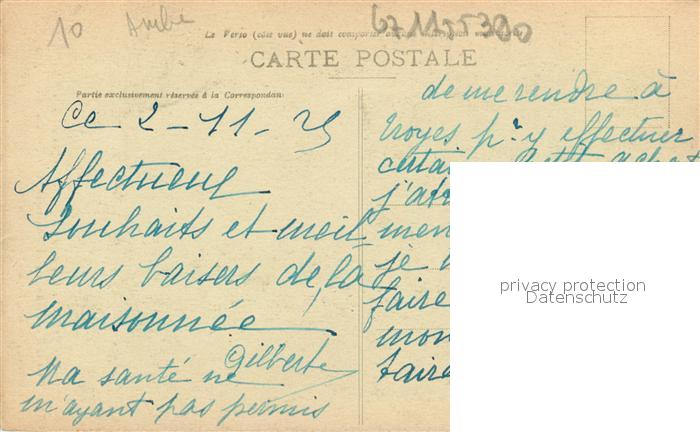 10 Aube
67 1155390
Le Verso (côté vue) ne doit comporter aucune inscription
CARTE POSTALE
Partie exclusivement réservée à la Correspondance
Ce 2-11-25
Affectueux
souhaits et meil-
leurs baisers de la
maisonnée
Gilberte
Ma santé ne
m'ayant pas permis
de me rendre à
Troyes pr y effectuer
j'
men
je
faire
mon
faire
privacy protection
Datenschutz